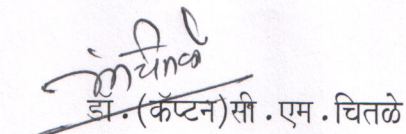 डॉ. (कॅप्टन) सी . एम . चितळे